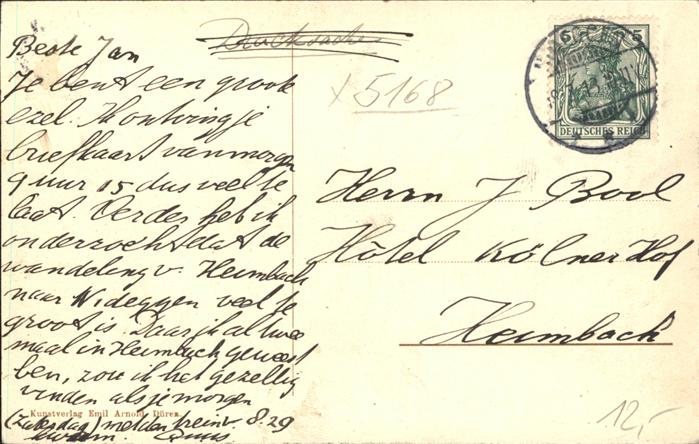 Drucksache
Beste Jan
Je bent een groote
ezel. Ik ontving je
briefkaart vanmorgen
9 uur 15 dus veel te
laat. Verder heb ik
onderzocht dat de
wandeling v. Heimbach
naar Nideggen veel te
groot is. Daar ik al twee
maal in Heimbach geweest
ben, zou ik het gezellig
vinden als je morgen
(Zaterdag) met den trein v. 8.29
kwam.
x 5168
5
DEUTSCHES REICH
Herrn J Bool
Hôtel Kölner Hof
Heimbach
Kunstverlag Emil Arnold, Düren.
12,-